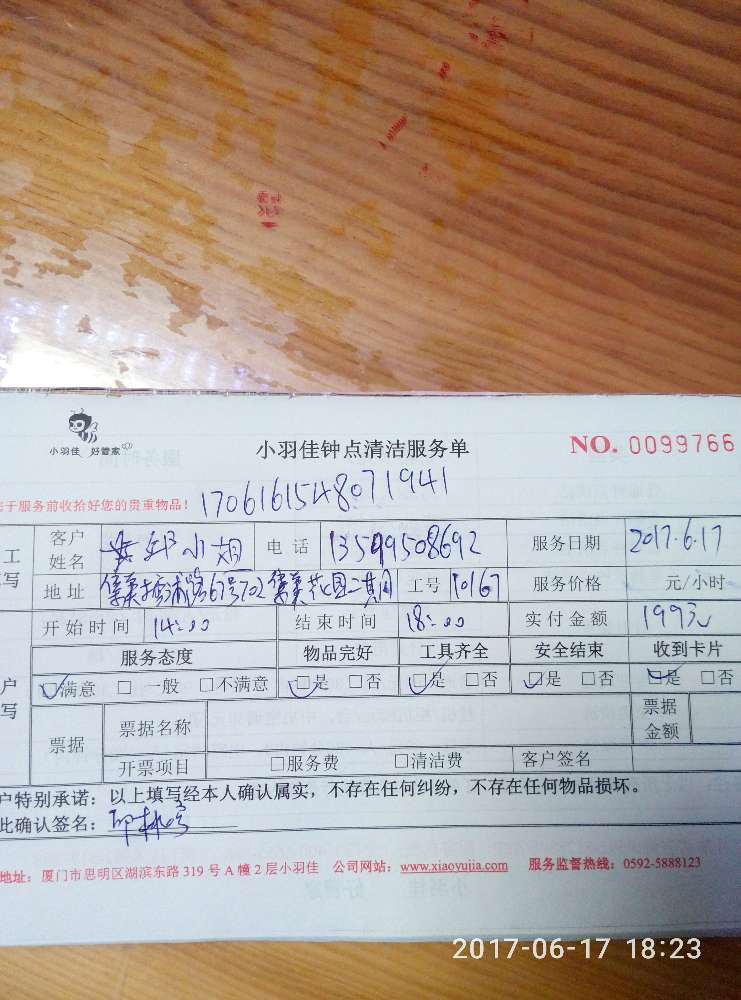 小羽佳 好管家
小羽佳钟点清洁服务单
NO. 0099766
于服务前收拾好您的贵重物品!
1706161548071941
工
写
客户姓名 邱小姐 电话 13599508692 服务日期 2017.6.17
地址 集美 浦路67号702集美花园二期 工号 10167 服务价格 元/小时
开始时间 14:00 结束时间 18:00 实付金额 199元
服务态度 物品完好 工具齐全 安全结束 收到卡片
户
写
☑满意 □一般 □不满意 ☑是 □否 ☑是 □否 ☑是 □否 ☑是 □否
票据 票据名称 票据金额
开票项目 □服务费 □清洁费 客户签名
户特别承诺:以上填写经本人确认属实,不存在任何纠纷,不存在任何物品损坏。
此确认签名:邱
地址:厦门市思明区湖滨东路 319 号 A 幢 2 层小羽佳 公司网站:www.xiaoyujia.com 服务监督热线:0592-5888123
2017-06-17 18:23